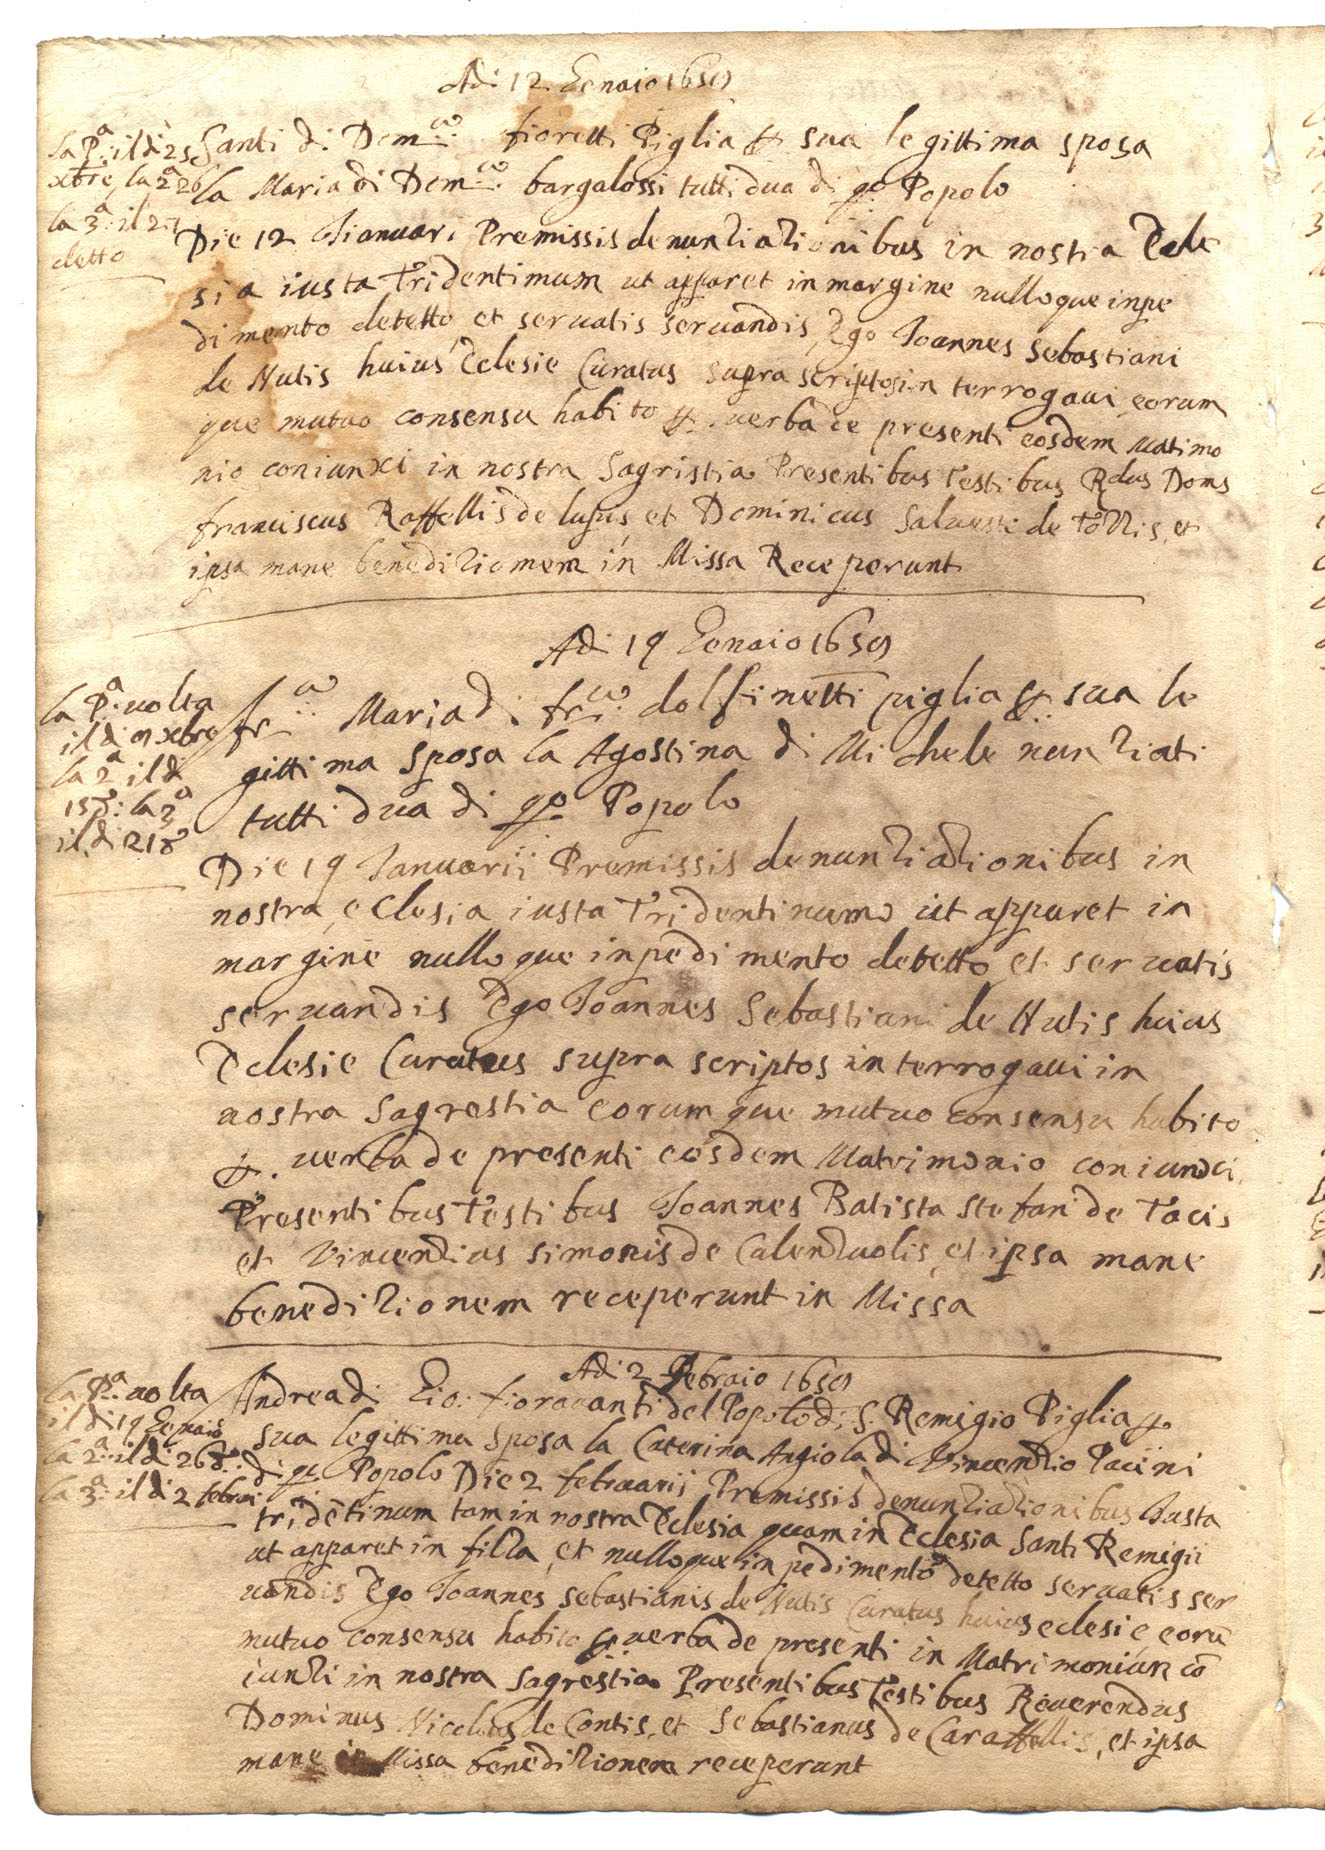 Adi 12 Genaio 1659
la Pª: il di 25
xbre, la 2ª 26
la 3ª: il 27
detto
Santi di Dom:co fioretti Piglia p sua legittima sposa
la Maria di Dom:co bargalossi tutti dua di qo Popolo
Die 12 Jianuari Premissis denuntiationibus in nostra Ecle
sia iusta Tridentimum ut apparet in margine nulloque inpe
dimento detetto et seruatis seruandis, Ego Joannes Sebastiani
de Nutis huius Eclesie Curatus supra scriptos in terrogaui eorum
que mutuo consensu habito p. uerba de presenti eosdem Matimo
nio coniunxi in nostra Sagristia Presentibus Testibus Rdus Doms
franciscus Raffellis de lupis, et Dominicus Saluesti de, et
ipsa mane beneditionem in Missa Receperunt
Adi 19 Genaio 1659
la Pª: uolta
il di 9 xbre
la 2ª il di
15 d: la 3ª
il di 21 d
fr:co Maria di fr:co dolfinetti piglia p sua le
gittima sposa la Agostina di Michele nunziati
tutti dua di qo Popolo
Die 19 Januarii Premissis denuntiationibus in
nostra eclesia iusta Tridentinum ut apparet in
margine nulloque inpedimento detetto et seruatis
seruandis Ego Joannes Sebastiani de Nutis huius
Eclesie Curatus supra scriptos in terrogaui in
nostra Sagrestia eorumque mutuo consensu habito
p. uerba de presenti eosdem Matrimonio coniunxi
Presentibus Testibus Joannes Batista Stefani de Tacis
et Vincentius Simonis de Calenzuolis, et ipsa mane
beneditionem receperunt in Missa
Adi 2 Febraio 1659
la Pª: uolta
il di 19 Genaio
la 2ª: il di 26 d:
la 3ª: il di 2 febrai
Andrea di Gio: fiorauanti del Popolo di S. Remigio Piglia p
sua legittima sposa la Caterina Angiola di Vincenzio Pacini
di qo Popolo Die 2 februarii Premissis denuntiationibus Justa
tridētinum tam in nostra Eclesia quam in Eclesia Santi Remigii
ut apparet in filza, et nulloque inpedimento detetto seruatis ser
uandis Ego Joannes Sebastianis de Nutis Curatus huius eclesie eorū
mutuo consensu habito p uerba de presenti in Matrimoniun cō
iunzi in nostra Sagrestia Presentibus Testibus Reuerendus
Dominus Nicolaus de Contis, et Sebastianus de Caraffellis, et ipsa
mane in Missa beneditionem receperunt